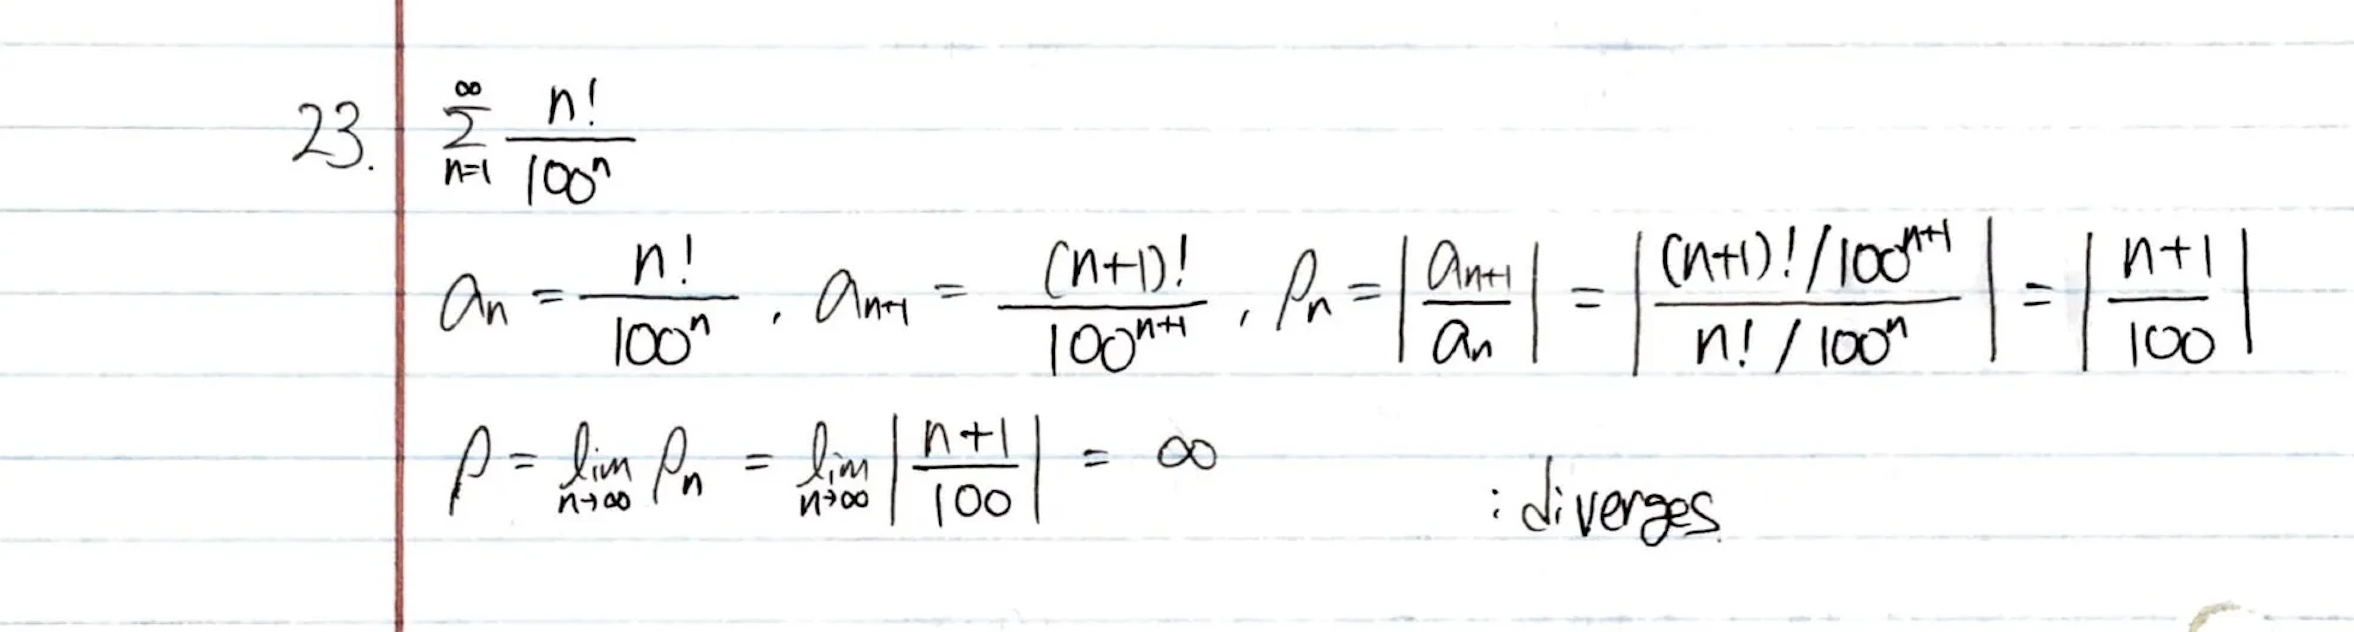 23. $\sum_{n=1}^{\infty} \frac{n!}{100^n}$
$a_n = \frac{n!}{100^n}, a_{n+1} = \frac{(n+1)!}{100^{n+1}}, \rho_n = \left| \frac{a_{n+1}}{a_n} \right| = \left| \frac{(n+1)! / 100^{n+1}}{n! / 100^n} \right| = \left| \frac{n+1}{100} \right|$
$\rho = \lim_{n \to \infty} \rho_n = \lim_{n \to \infty} \left| \frac{n+1}{100} \right| = \infty$ : diverges.